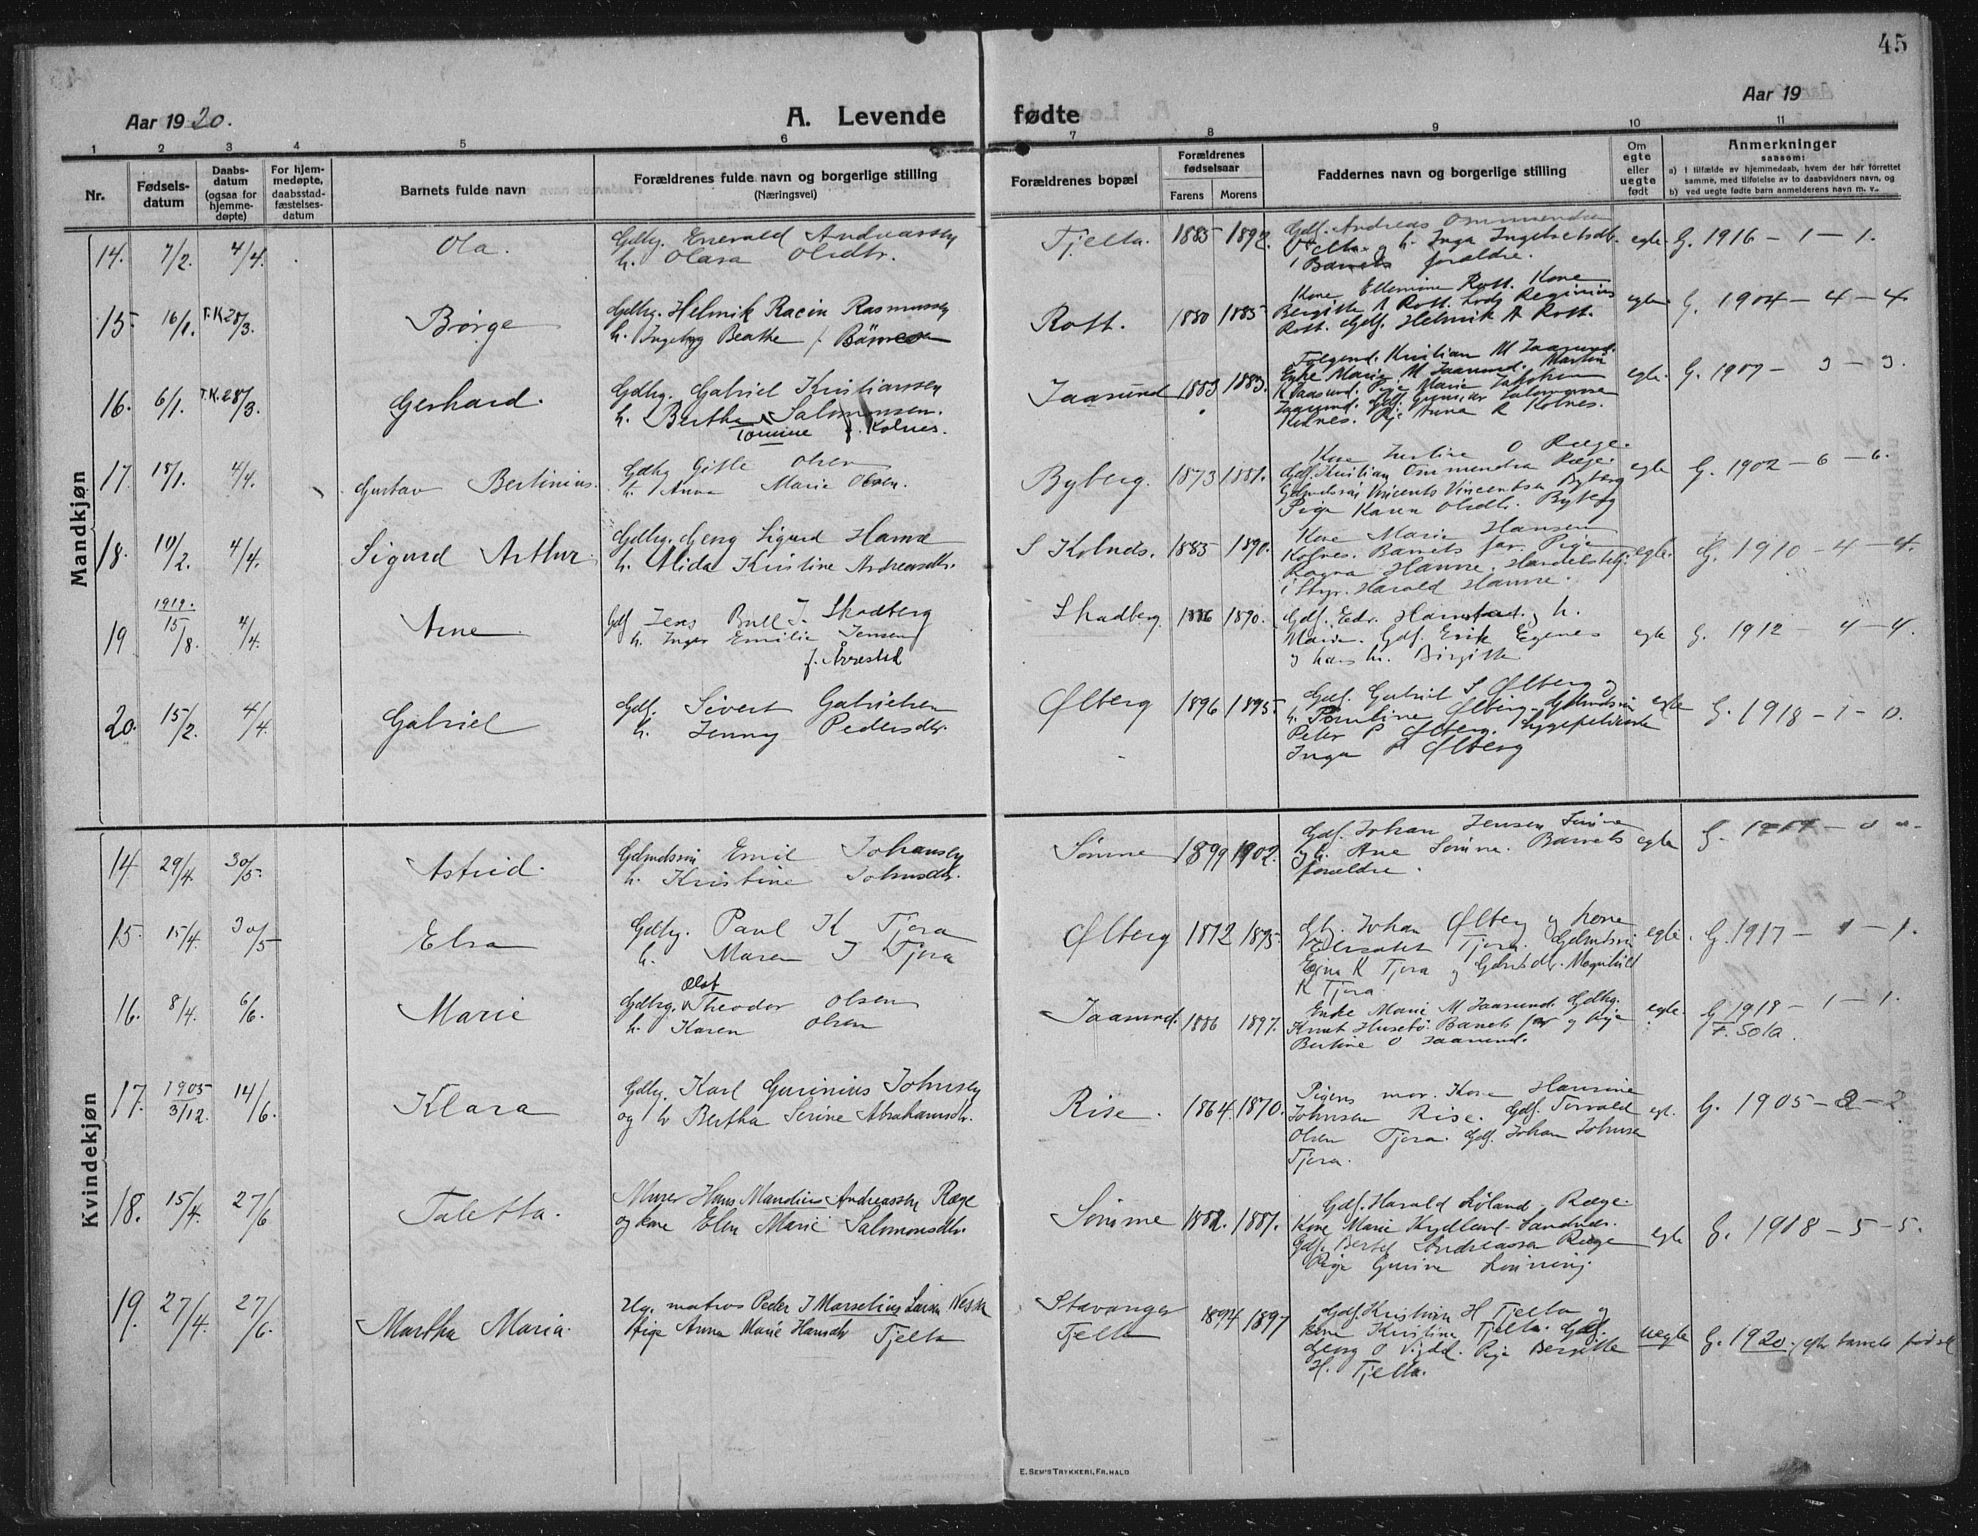 45
Aar 1920.
A. Levende fødte
Aar 19
1 2 3 4 5 6 7 8 9 10 11
Nr.
Fødsels-
datum
Daabs-
datum
(ogsaa for
hjemme-
døpte)
For hjem-
medøpte,
daabsstad-
fæstelses-
datum
Barnets fulde navn
Forældrenes fulde navn og borgerlige stilling
(Næringsvei)
Forældrenes bopæl
Forældrenes
fødselsaar
Farens Morens
Faddernes navn og borgerlige stilling
Om
egte
eller
uegte
født
Anmerkninger
saasom:
a) I tilfælde av hjemmedaab, hvem der har forrettet
samme, med tilføielse av to daabsvidners navn, og
b) ved uegte fødte barn anmelderens navn m. v.
Mandkjøn
14. 7/2. 4/4. Ola. Gdbg. Enevald Andreassen
h. Olava Olsdtr.
Tjelta. 1885 1892.
Gdf. Andreas Ommundsen
Tjelta og h. Inga Ingebretsdtr.
Barnets forældre.
egte. G. 1916 - 1 - 1.
15. 16/1. T.K. 28/3. Børge
Gdbg. Helmik Racin Rasmussen
h. Ingeborg Beathe f.
Rott. 1880 1885
Kone Ellemine Rott. Kone
Bergitte A Rott. Reginius
Rott. Gdf. Helmik A Rott.
egte G. 1904 - 4 - 4
16. 6/1. T.K. 28/3. Gerhard.
Gdbg. Gabriel Kristianssen
h. Berthe Salomonsen.
Tomine f. Kolnes.
Jaasund 1883 1883.
Kristian M Jaasund.
Enke Marie M Jaasund. Martin
K Jaasund. Pige Marie
Jaasund. Gdf. Gunnar Salomonsen
Kolnes. Pige Anna R Kolnes.
egte. G. 1907 - 3 - 3.
17. 18/1. 4/4. Gustav Bertinius.
Gdbg Gitle Olsen
h. Anna Marie Olsen.
Byberg. 1873 1881.
Kone O Ræge.
Gdf. Kristian Ommundsen Ræge.
Gdmdsøn Vincents Vincentsen Byberg
Pige Karen Olsdtr. Byberg
egte G. 1902 - 6 - 6.
18. 10/2. 4/4. Sigurd Arthur.
Gdbg. Georg Sigurd Hanne
h. Alida Kristine Andreasdtr.
S Kolnes. 1883 1890.
Kone Marie Hansen
Kolnes. Barnets far. Pige
Ragna Hanne. Handelsbetj.
i Styr. Harald Hanne.
egte. G. 1910 - 4 - 4.
19 1919. 15/8. 4/4 Arne
Gdf Jens Bull J. Skadberg
h. Inger Emilie Jensen
f. Årrestad
Skadberg. 1886 1890.
Gdf. Edv. Hanstad og h.
Marie. Gdf. Erik Egenes
og hans h. Birgitte
egte G. 1912 - 4 - 4.
20. 15/2. 4/4. Gabriel
Gdf. Sivert Gabrielsen
h. Jenny Pedersdtr.
Ølberg 1896 1895.
Gdf. Gabriel S Ølberg og
h. Pauline Ølberg. Gdmdsøn
Peter P Ølberg.
Inga P Ølberg
egte G. 1918 - 1 - 0.
Kvindekjøn
14 29/4. 30/5. Astrid.
Gdmdssøn Emil Johansen
h. Kristine Johnsdtr.
Sømme 1899 1902.
Gdf. Johan Jensen Sømme
og h. Ane Sømme. Barnets
forældre.
egte G.
15. 15/4. 30/5 Elsa
Gdbg. Paul K Tjora
h. Maren J Tjora
Ølberg 1872 1895.
Gdbg. Johan Ølberg og kone
Elisabet Tjora. Gdmdssøn
K Tjora og Gdmdsdtr. Magnhild
K Tjora.
egte. G. 1917 - 1 - 1.
16. 8/4. 6/6. Marie
Olaf
Gdbg. Theodor Olsen
h. Karen Olsen
Jaasund. 1886 1897.
Enke Marie M Jaasund. Gdbg.
Knut Husebø. Barnets far og pige
Bertine O Jaasund.
egte. G 1918 - 1 - 1.
F. Sola.
17. 1905 3/12. 14/6. Klara
Gdbg. Karl Guninius Johnsen
og h Bertha Serine Abrahamsdtr.
Rise. 1864. 1870.
Pigens mor. Kone Hansine
Johnsen Rise. Gdf. Torvald
Olsen Tjora. Gdf. Johan Johnsen
Tjora.
egt. G. 1905 - 3 - 2.
18. 15/4. 27/6 Taletta.
Murer Hans Mandius Andreassen Ræge
og kone Elen Marie Salomonsdtr.
Sømme 1882. 1887.
Gdf. Harald Løland Ræge.
Kone Marie Kydland Sandnes.
Gdf. Bertel Andreassen Ræge
Pige Gurine Lønning.
egte G. 1908 - 5 - 5.
19. 27/4. 27/6. Martha Maria.
Ug. matros Peder J Marselius Larsen Næsse
Pige Anna Marie Hansdtr Tjelta
Stavanger
Tjelta
1894 1897
Gdf. Kristian H Tjelta og
kone Kristine Tjelta. Gdf.
Georg O Vigdel. Pige Bergitte
H. Tjelta.
uegte G. 1920. efter barnets fødsel
E. SEM'S TRYKKERI, FR.HALD